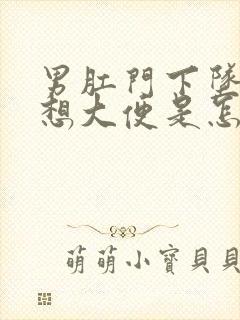 男肛門下墜
想大便是怎
萌萌小寶貝